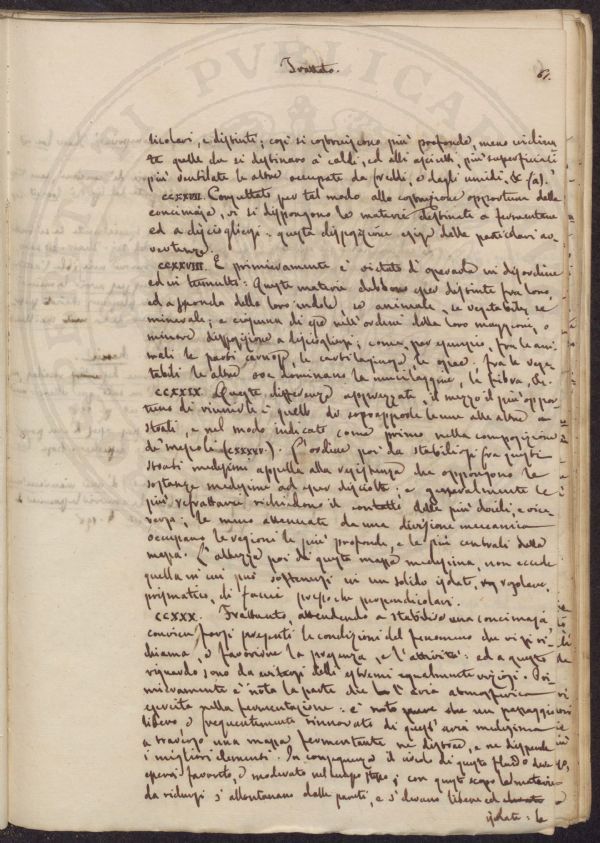 Trattato.
61.
ticolari, e distinti; così si costruiscono più profonde, meno
te quelle che si destinano a' caldi, ed alli asciutti, più superficiali
più ventilate le altre occupate da freddi, e dagli umidi, & (a).
CCXXVII. Consultato per tal modo alla costruzione opportuna della
concimaja, vi si dispongono le materie destinate a fermentare
ed a disciogliersi: questa disposizione esige delle particolari av-
vertenze.
CCXXVIII. E primieramente è vietato di operarla in disordine
ed in tumulto: Queste materie debbono esser distinte fra loro,
ed a seconda della loro indole, se animale, se vegetabile, se
minerale; e ciascuna di esse nell'ordine della loro maggiore, o
minore disposizione a disciogliersi; come, per esempio, fra le ani-
mali le parti carnose, le cartilaginose, le ossee: fra le vege-
tabili le altre ove dominano la mucilaggine, la fibra, &.
CCXXIX. Queste differenze apprezzate, il mezzo il più oppor-
tuno di riunirle è quello di sovrapporle le une alle altre a
strati, e nel modo indicato come primo nella composizione
de' miscoli (CXXXXV.). L'ordine poi da stabilirsi fra questi
strati medesimi appella alla resistenza che oppongono le
sostanze medesime ad esser disciolte; e generalmente le
più refrattarie richiedono il contatto delle più docili, e vice-
versa; le meno attenuate da una divisione meccanica
occupano le regioni le più profonde, e le più centrali della
massa. L'altezza poi di questa massa medesima, non eccede
quella in cui può sostenersi in un solido isolato, regolare,
prismatico, di faccie pressoché perpendicolari.
CCXXX. Frattanto, attendendo a stabilire una concimaja
conviene farsi presenti le condizioni del fenomeno che vi si ri-
chiama, o favorirne la presenza, e l'attività: ed a questo
riguardo sono da evitarsi delli estremi egualmente viziosi. Pri-
mieramente è nota la parte che l'aria atmosferica
esercita nella fermentazione: è noto pure che un passaggio
libero e frequentemente rinnovato di quest'aria medesima
a traverso una massa fermentante ne distrae, e ne disperde
i migliori elementi. In conseguenza il circolo di questo fluido deve
essere favorito, e moderato nel tempo stesso; con questo scopo le materie
da ridursi s'allontanano dalle pareti, e s'elevano libere ed
isolate: la